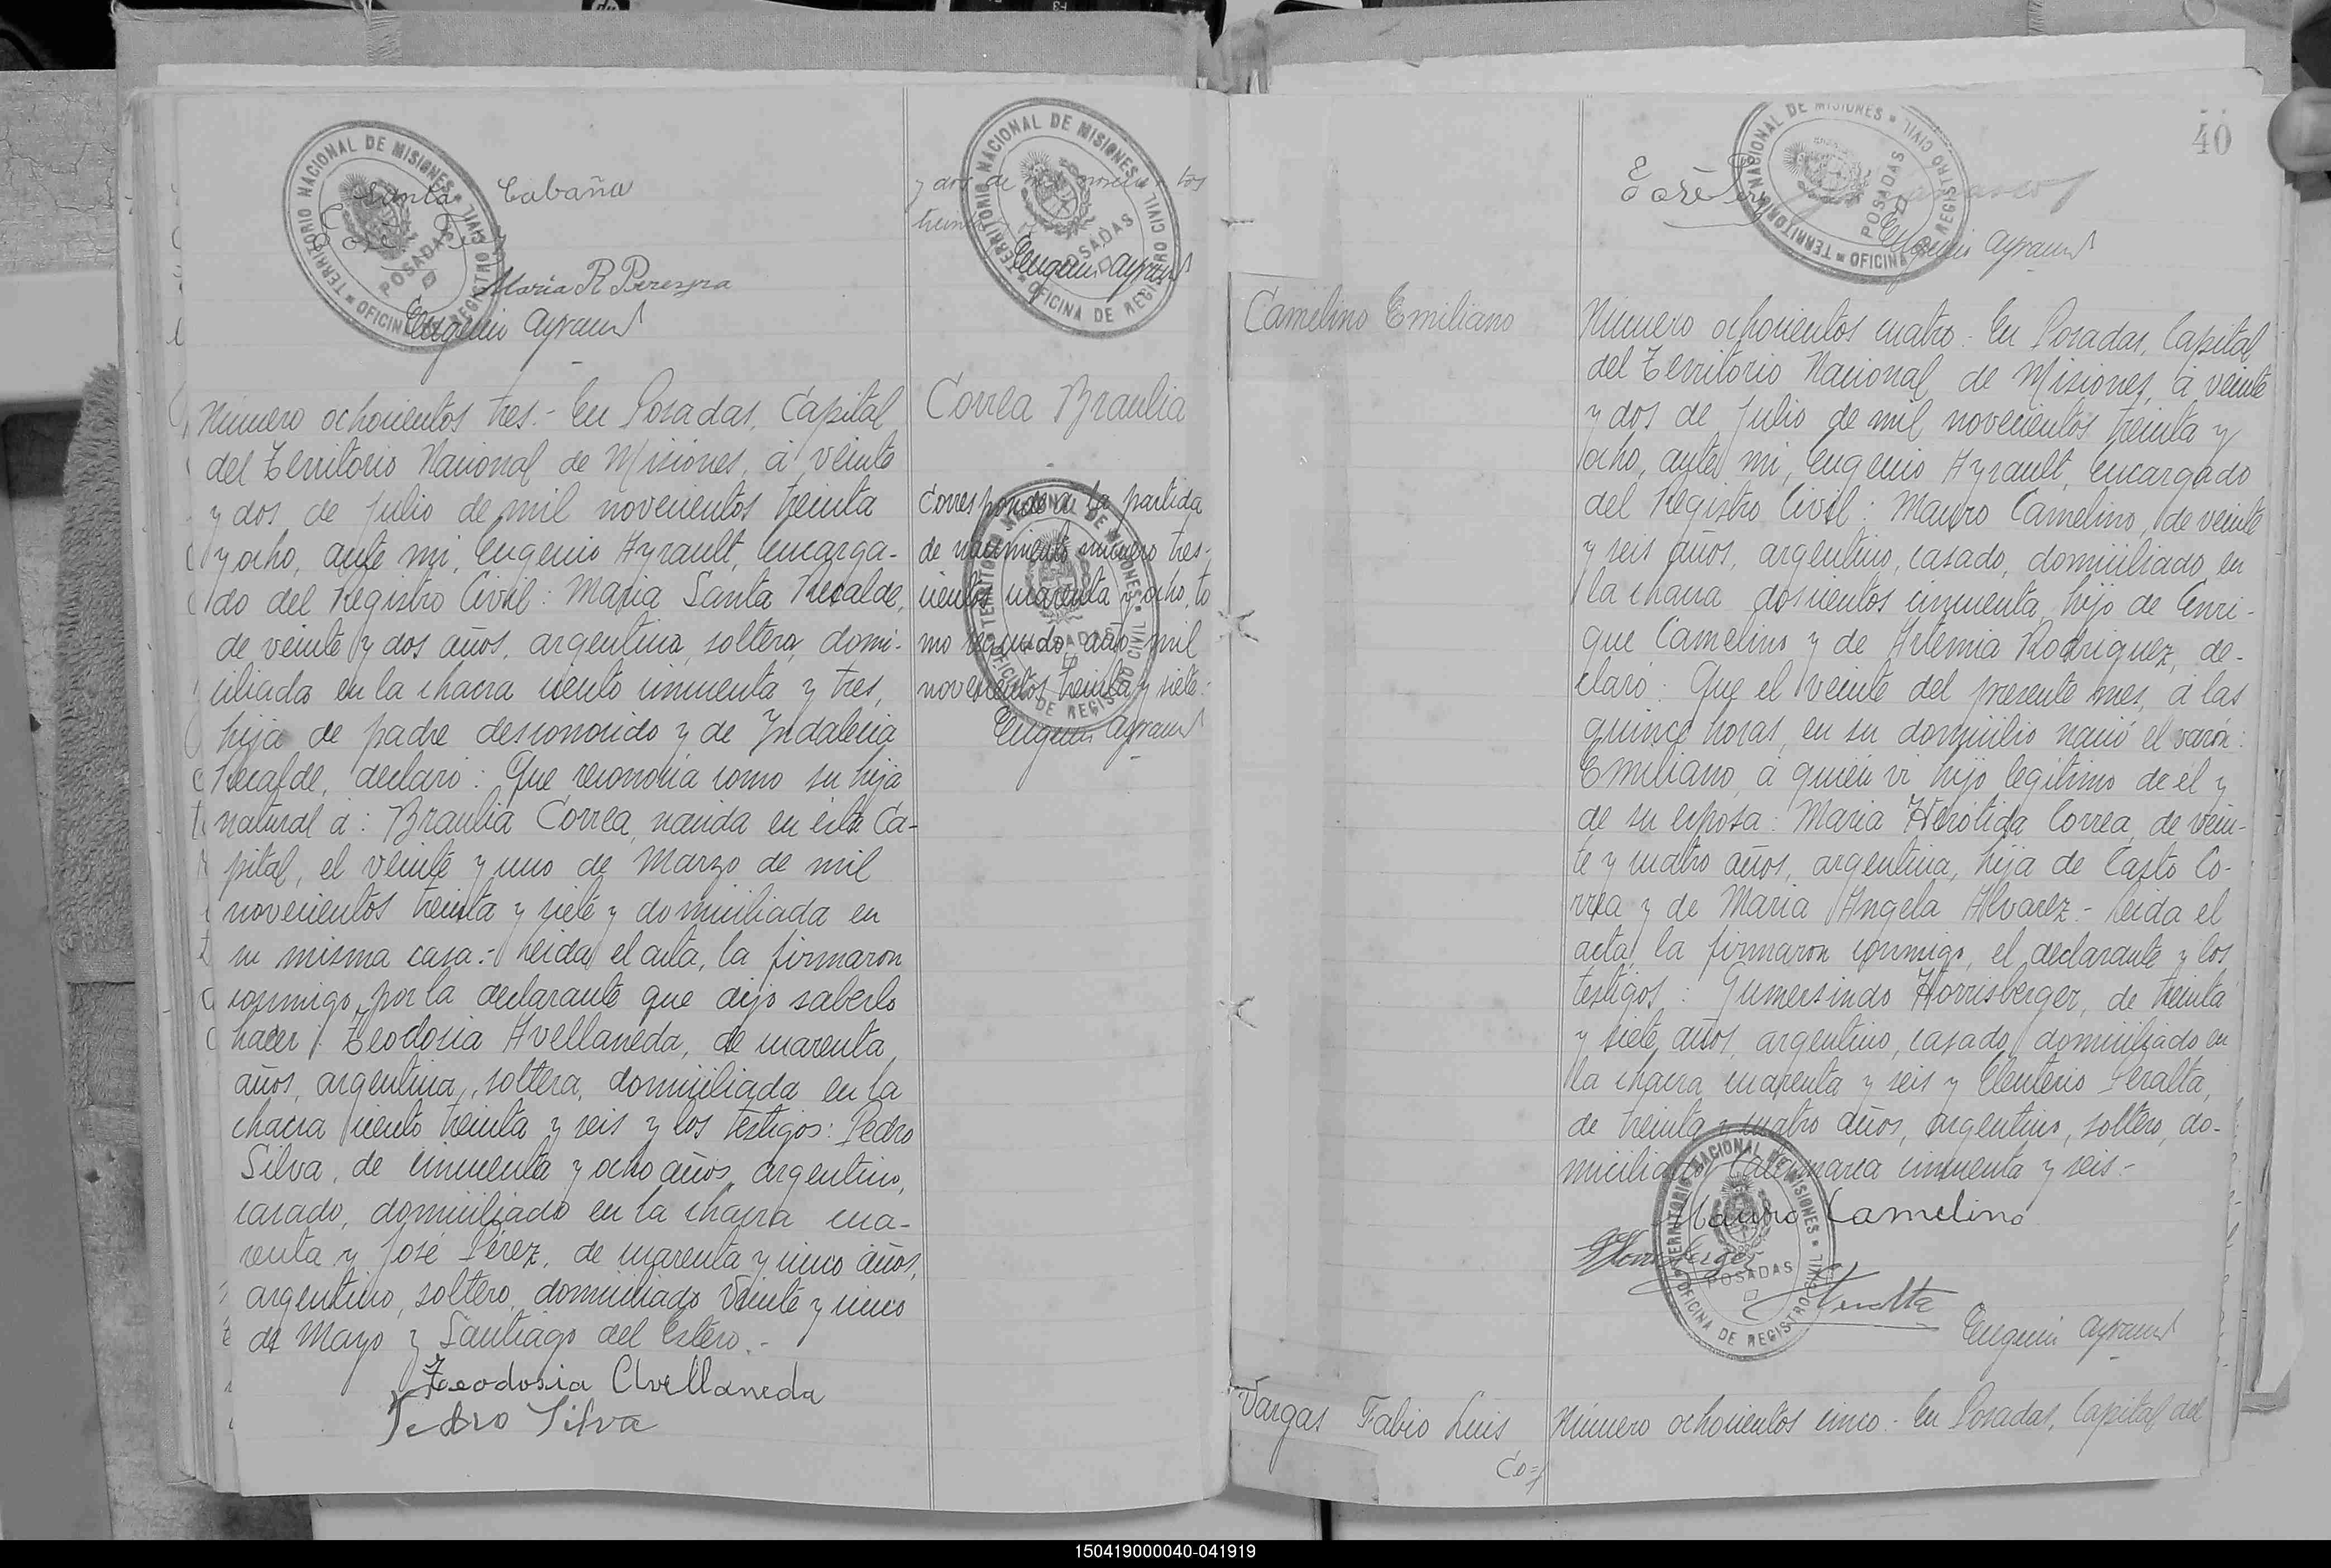 Santa Cabaña
José Pérez
Maria R Pereyra
Eugenio Ayrault
Número ochocientos tres.- En Posadas, Capital
del Territorio Nacional de Misiones, á veinte
y dos de Julio de mil novecientos treinta
y ocho, ante mi, Eugenio Ayrault, encarga-
do del Registro Civil: Maria Santa Recalde,
de veinte y dos años, argentina, soltera, domi-
ciliada en la chacra ciento cincuenta y tres,
hija de padre desconocido y de Yndalecia
Recalde, declaró: Que reconocía como su hija
natural á: Braulia Correa, nacida en esta Ca-
pital, el veinte y uno de Marzo de mil
novecientos treinta y siete y domiciliada en
su misma casa.- Leida el acta, la firmaron
conmigo, por la declarante que dijo saberlo
hacer: Teodosia Avellaneda, de cuarenta
años, argentina, soltera, domiciliada en la
chacra ciento treinta y seis y los testigos: Pedro
Silva, de cincuenta y ocho años, argentino,
casado, domiciliado en la chacra cua-
renta y José Pérez, de cuarenta y cinco años,
argentino, soltero, domiciliado Veinte y cinco
de Mayo y Santiago del Estero.-
Teodosia Avellaneda
Pedro Silva
y dos de mil novecientos
treinta
Eugenio Ayrault
Correa Braulia
Corresponde a la partida
de nacimiento número tres-
cientos cuarenta y ocho, to
mo segundo, año mil
novecientos treinta y siete.-
Eugenio Ayrault
TERRITORIO NACIONAL DE MISIONES
OFICINA DE REGISTRO CIVIL
POSADAS
40
José Pérez
Eugenio Ayrault
Camelino Emiliano
Número ochocientos cuatro.- En Posadas, Capital
del Territorio Nacional de Misiones, á veinte
y dos de Julio de mil novecientos treinta y
ocho, ante mi, Eugenio Ayrault, encargado
del Registro Civil: Mauro Camelino, de veinte
y seis años, argentino, casado, domiciliado en
la chacra doscientos cincuenta, hijo de Enri-
que Camelino y de Artemia Rodriguez, de-
claró: Que el veinte del presente mes, á las
quince horas, en su domicilio nació el varón:
Emiliano, á quién vi hijo legitimo de él y
de su esposa: Maria Herótida Correa, de vein-
te y cuatro años, argentina, hija de Casto Co-
rrea y de Maria Angela Alvarez.- Leida el
acta, la firmaron conmigo, el declarante y los
testigos: Gumersindo Horrisberger, de treinta
y siete años, argentino, casado, domiciliado en
la chacra cuarenta y seis y Eleuterio Peralta,
de treinta y cuatro años, argentino, soltero, do-
miciliado Catamarca cincuenta y seis.-
Mauro Camelino
Horrisberger
Peralta
Eugenio Ayrault
Vargas Fabio Luis
Número ochocientos cinco.- En Posadas, Capital del
150419000040-041919